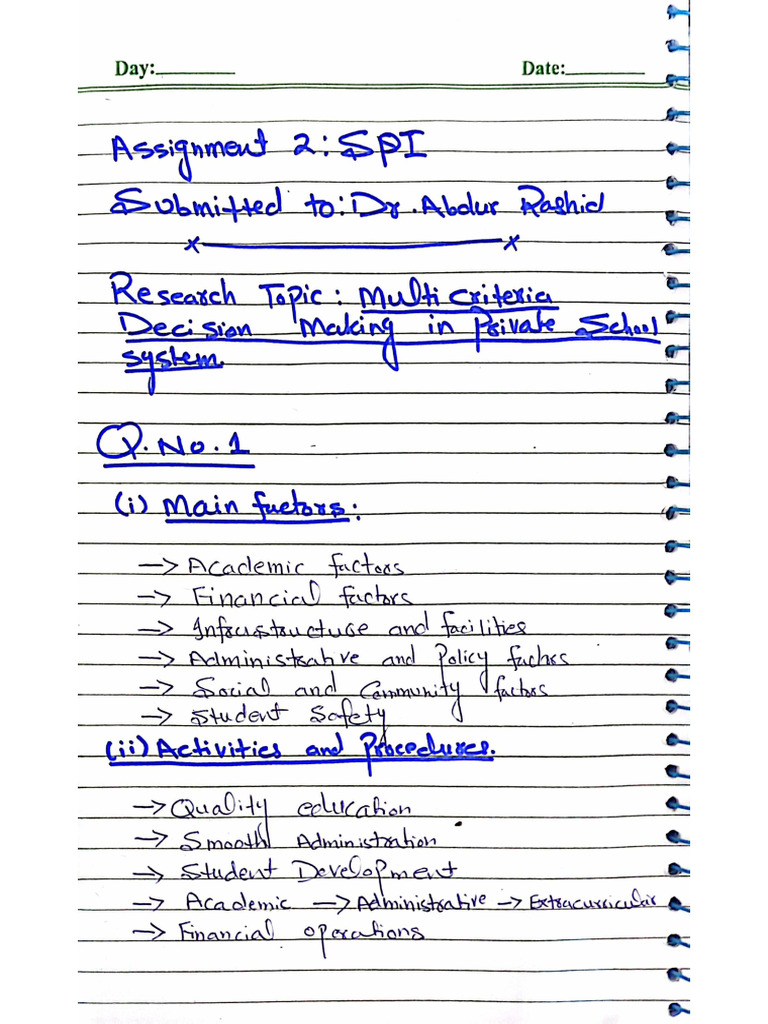 Day:________ Date:________
Assignment 2: SPI
Submitted to: Dr. Abdur Rashid
x————x
Research Topic: Multi criteria
Decision Making in Private School
system.
Q.No.1
(i) Main factors:
→ Academic factors
→ Financial factors
→ Infrastructure and facilities
→ Administrative and Policy factors
→ Social and Community factors
→ Student Safety
(ii) Activities and Procedures.
→ Quality education
→ Smooth Administration
→ Student Development
→ Academic → Administrative → Extracurricular
→ Financial operations